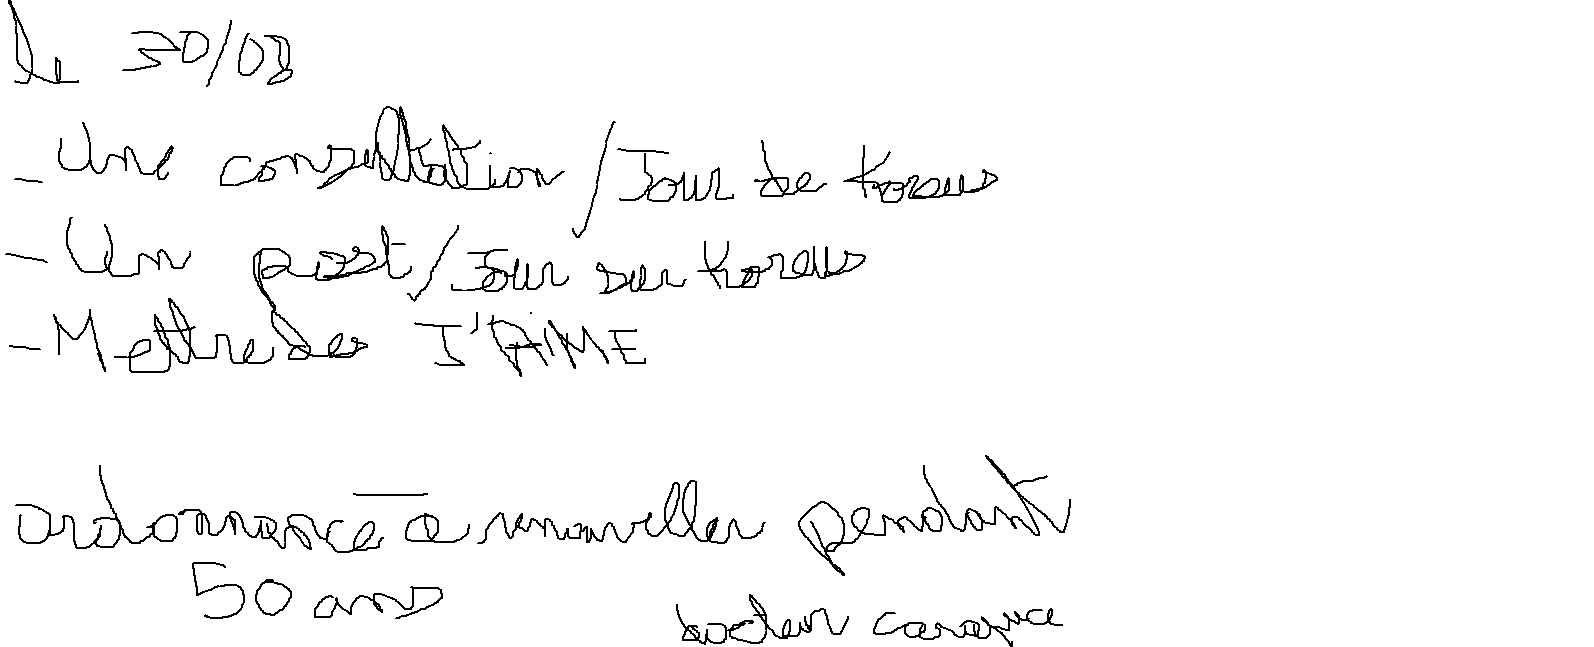 le 30/08
- Une consultation / Jour de Koreus
- Un post / Jour sur Koreus
- Mettre des J'AIME
ordonnance a renouveller pendant
50 ans
docteur carapuce